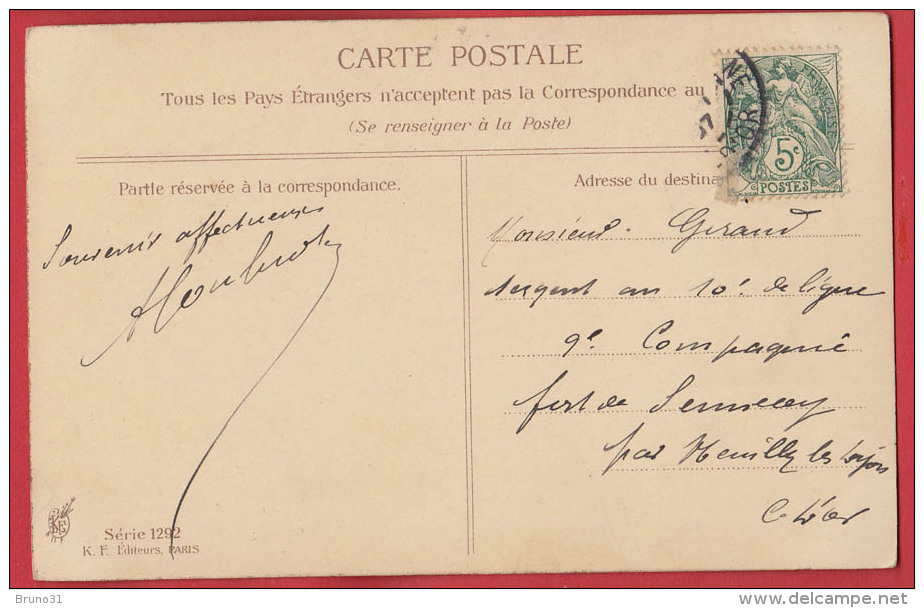 CARTE POSTALE
Tous les Pays Étrangers n'acceptent pas la Correspondance au
(Se renseigner à la Poste)
Partie réservée à la correspondance.
Adresse du destina
5c
POSTES
Souvenir affectueux
Monsieur Giraud
sergent au 10e de ligne
9e Compagnie
fort de Sennecey
par Neuilly les Dijon
C. d'or
Série 1292
K. F. Éditeurs, PARIS
Bruno31
www.delcampe.net